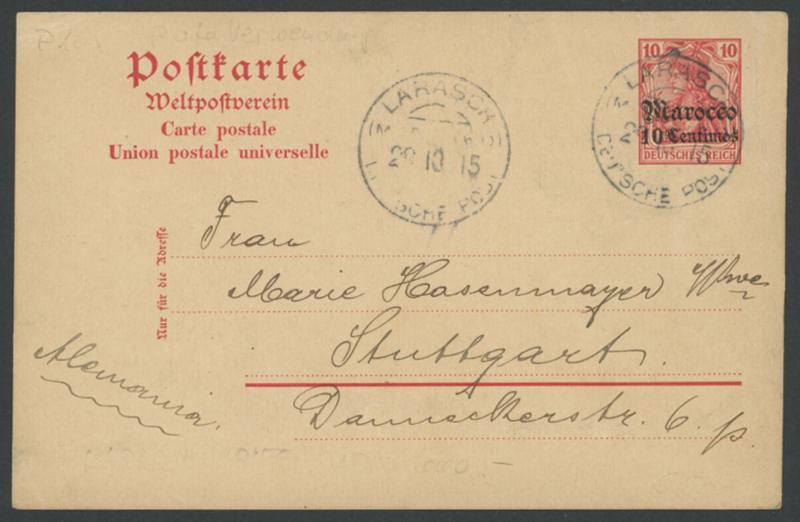 späte Verwendung
10 10
Postkarte
Weltpostverein
Carte postale
Union postale universelle
Marocco
10 Centimos
DEUTSCHES REICH
LARASCH
29 10 15
DEUTSCHE POST
LARASCH
29 10 15
DEUTSCHE POST
Nur für die Adresse
Frau
Marie Hasenmayer Wwe
Stuttgart.
Alemania.
Danneckerstr. 6 p.